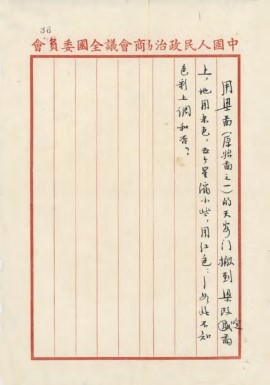 36
中國人民政治協商會議全國委員會
用梁画(原始画之一)的天安门搬到梁改画
上，地用米色，五个星缩小些，用红色；—如此不知
色彩上调和否？